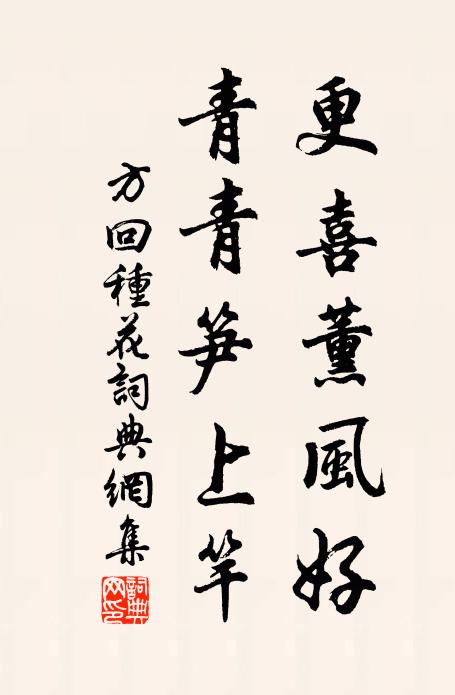 更喜薰風好
青青笋上竿
方回種花詞典網集
詞典
网印